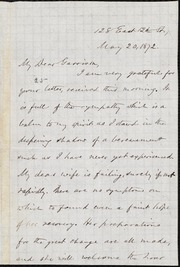 128 East 12th St.,
May 20, 1872.
My Dear Garrison,
I am very grateful for
your letter, received this morning. It
is full of the sympathy which is a
balm to my spirit as I stand in the
deepening shadows of a bereavement
such as I have never yet experienced.
My dear wife is failing, surely, if not
rapidly. There are no symptoms on
which to found even a faint hope
of her recovery. Her preparations
for the great change are all made,
and she will welcome the hour